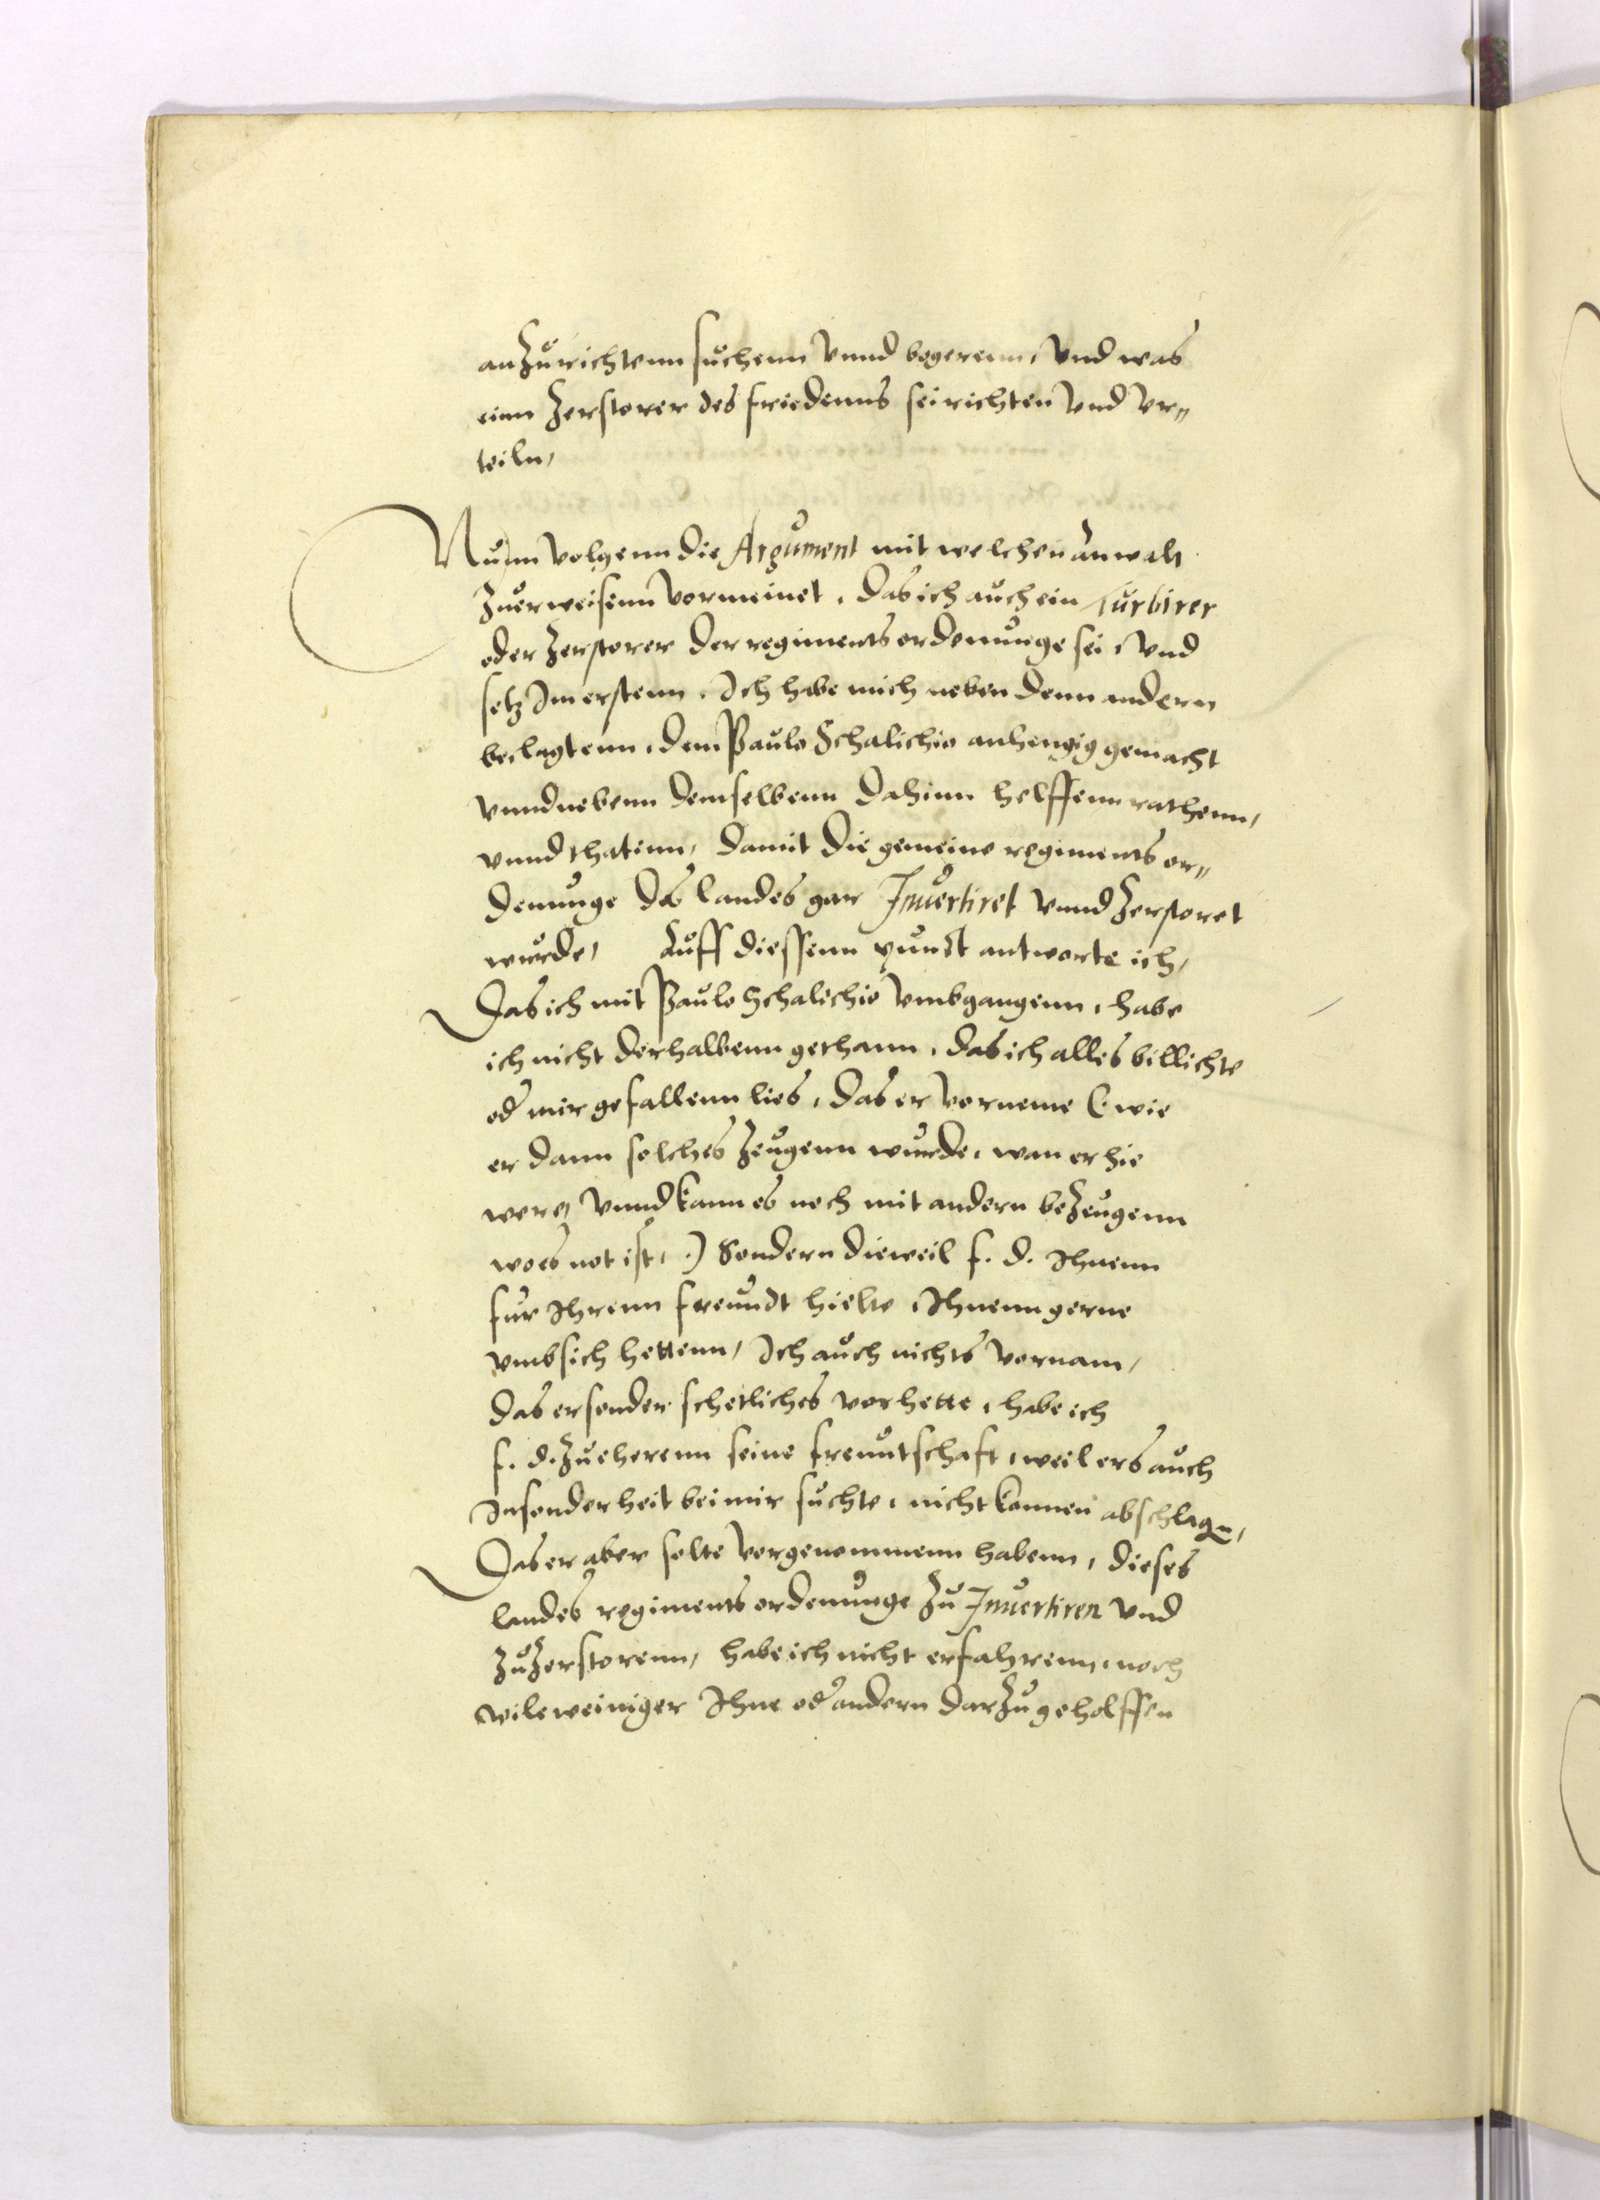 anzurichtenn suchenn vnnd begerenn, Vnd was
einn Zerstorer des friedenns sei richten vnd vr=
teiln,
Nunn volgenn die Argument mit welchen anwalt
Zuerweisenn vormeinet, das ich auch ein Turbirer
oder Zerstorer der regiments ordenunge sei, Vnd
setz Im erstenn, Ich habe mich neben denn andern
beclagtenn, dem Paulo Schalichio anhengig gemacht
vnnd nebenn demselbenn dahinn helffenn rathenn,
vnnd thatenn, damit die gemeine regiments or=
denunge des landes gar Inuertiret vnnd Zerstoret
wurde, Auff diessenn punct antworte ich,
Das ich mit Paulo Schalichio vmbgangenn, habe
ich nicht derhalbenn gethann, das ich alles billichte
od mir gefallenn lies, das er vorneme (wie
er dann solches Zeugenn wurde, wan er hie
were, vnnd kann es noch mit andern beZeugenn
wo es not ist,) Sondern dieweil f. d. Ihnenn
fur Ihrenn freundt hielte, Ihnenn gerne
vmb sich hettenn, Ich auch nichts vornam,
das er sonder schetliches vorhette, habe ich
f. d. Zueherenn seine freuntschaft, weil ers auch
Insonderheit bei mir suchte, nicht konnen abschlagen,
Das er aber solte vorgenommenn habenn, dieses
landes regiments ordenunge Zu Inuertiren vnd
ZuZerstorenn, habe ich nicht erfahrenn, noch
vile weiniger Ihne od andern darZu geholffen